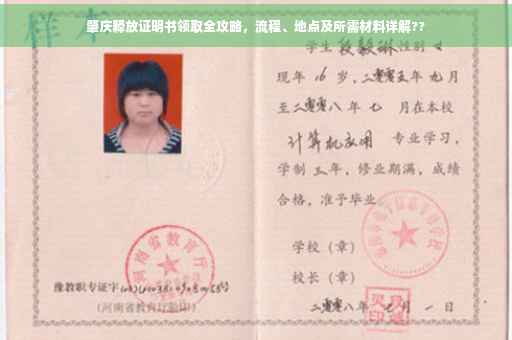 肇庆释放证明书领取全攻略，流程、地点及所需材料详解??
样本
学生 段毅琳 性别 女
现年 16 岁，二零零五年 九 月
至二零零八年 七 月在本校
计算机应用 专业学习，
学制 三 年，修业期满，成绩
合格，准予毕业
学校（章）
校长（章）
二零零八年 七 月 一 日
河南省教育厅
豫教职专证字
(河南省教育厅验印)